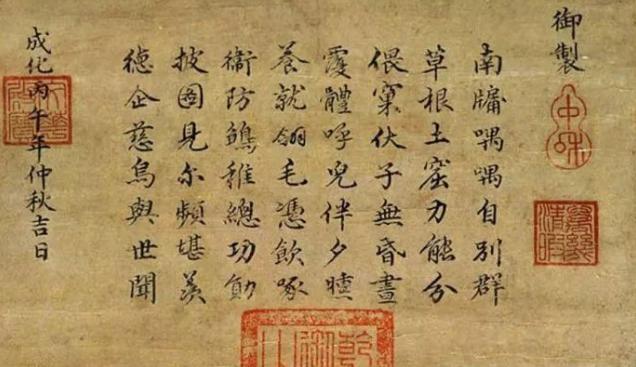 御製
南牖喁喁自別群
草根土窟力能分
偎窠伏子無昏晝
覆體呼兒伴夕曛
養就翎毛憑飲啄
衛防鶵稚總功勛
披圖見尔頻堪羨
德企慈烏與世聞
成化丙午年仲秋吉日